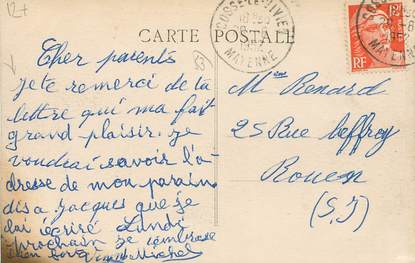 12+
CARTE POSTALE
COSSÉ-LE-VIVIEN
MAYENNE
12F
RF
COSSÉ
MAYENNE
Cher parents
je te remerci de ta
lettre qui ma fait
grand plaisir. je
voudrai savoir l'a-
dresse de mon parain
dis a jacques que je
lui écriré Lundi
prochain je t'embrasse
bien fort
Michel
53
Mme Renard
25 Rue Jeffroy
Rouen
(S.I)